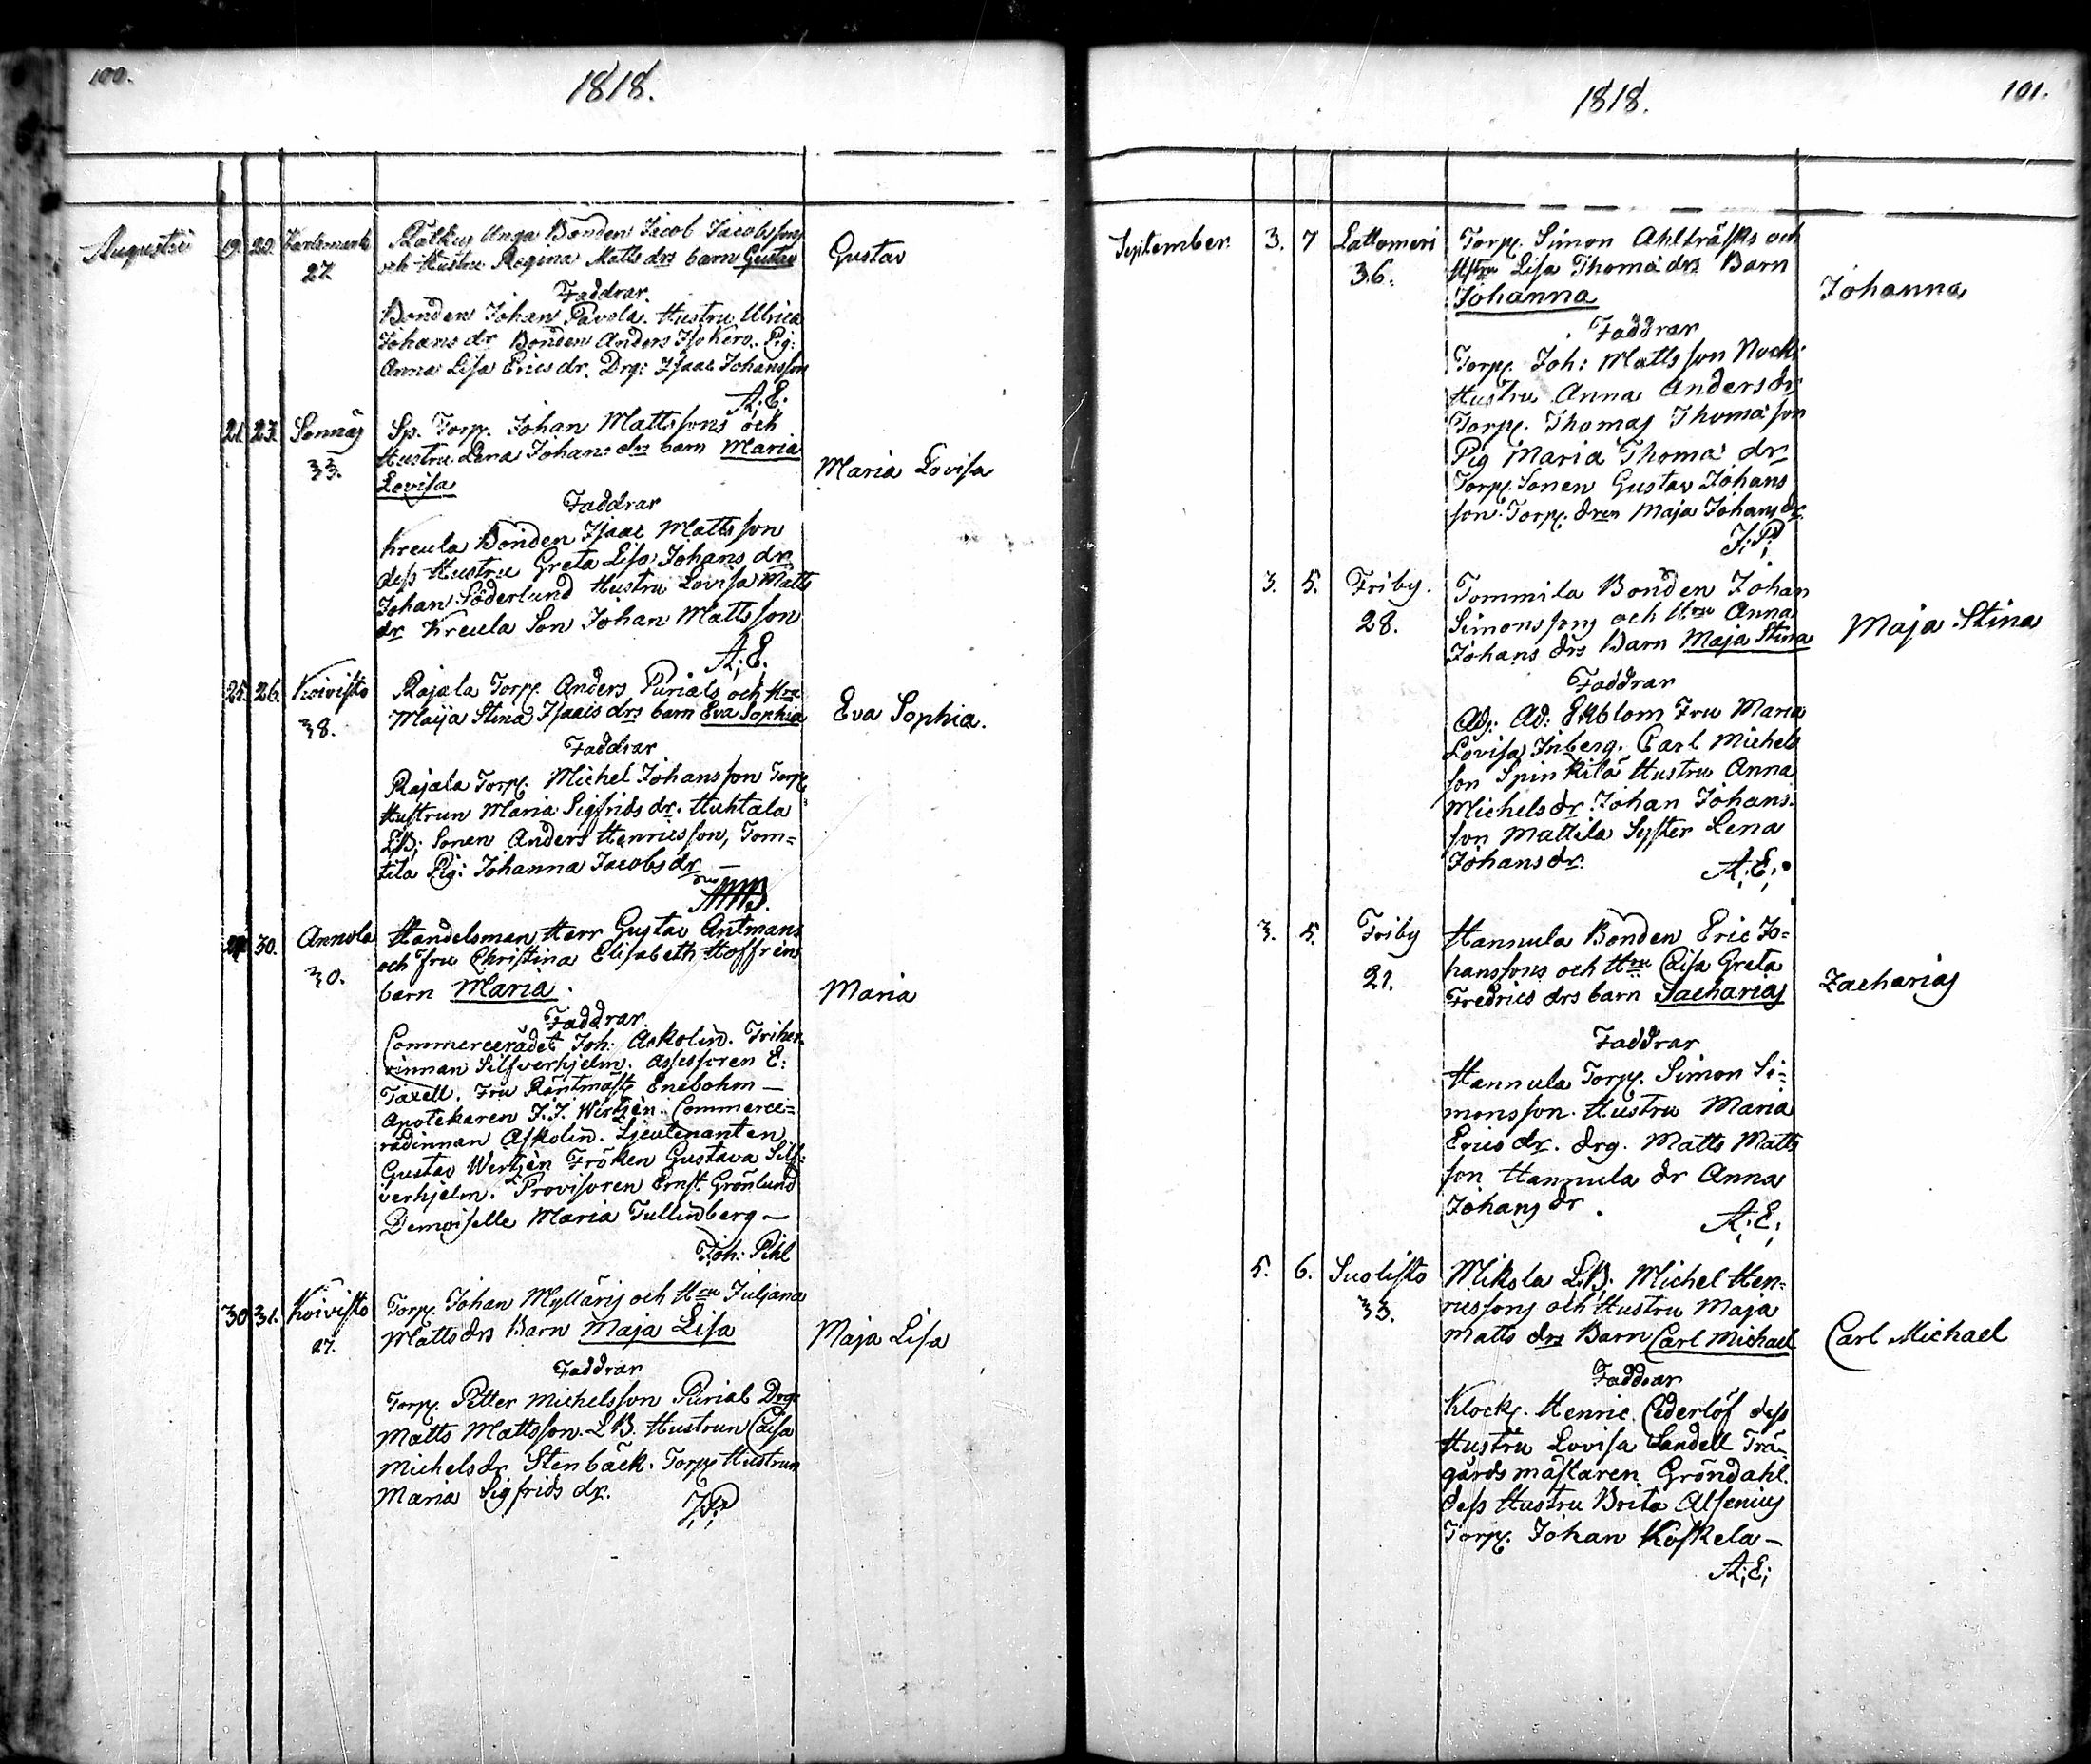 100.
1818.
Augusti 19. 20. Rälkus Unga Bonden Jacob Jacobssons
27. och Hustru Regina Matts drs barn Gustav
Gustav
Faddrar.
Bonden Johan Pavola. Hustru Ulrica
Johans dr Bonden Anders Isokero. Pig:
Anna Lisa Erics dr. Drg: Isaac Johansson
A: E.
21. 23. Sonnäs Sp. Torp. Johan Mattssons och
33. Hustru Lena Johans drs barn Maria
Lovisa
Maria Lovisa
Faddrar
Kreula Bonden Isaac Mattsson
dess Hustru Greta Lisa Johans dr
Johan Söderlund Hustru Lovisa Matts
dr Kreula Son Johan Mattsson
A; E.
25. 26. Koivisto Rajala Torp. Anders Purials och Hru
38. Maija Stina Isaacs drs barn Eva Sophia
Eva Sophia.
Faddrar
Rajala Torp. Michel Johansson Torp.
Hustrun Maria Sigfrids dr. Huhtala
LB; Sonen Anders Henricsson, Tom=
tila Pig: Johanna Jacobs dr —
30. Annola Handelsman Herr Gustav Antmans
30. och Fru Christina Elisabeth Hoffrèn
barn Maria.
Maria
Faddrar.
Commercerådet Joh: Askolin. Friher=
rinnan Silfverhjelm. Assessoren E:
Taxell. Fru Räntmäst. Enebohm —
Apotekaren J. J. Wirtzèn. Commerce=
rådinnan Askolin. Lieutenanten
Gustav Wirtzèn Fröken Gustava Silf=
verhjelm. Provisoren Ernst Grönlund
Demoiselle Maria Tullinberg —
Joh: Pihl
30 31. Koivisto Torp. Johan Mylläris och Hru Juljana
27. Matts drs Barn Maja Lisa
Maja Lisa
Faddrar
Torp. Petter Michelsson Purial Drg:
Matts Mattsson. LB. Hustrun Caisa
Michels dr Stenbäck. Torp. Hustrun
Maria Sigfrids dr.
J; P;
101.
1818.
September 3. 7 Lattomeri Torp. Simon Ahlträsks och
36. Hstru Lisa Thomæ drs Barn
Johanna
Johanna
Faddrar
Torp. Joh: Mattsson Nocki
Hustru Anna Anders dr
Torp. Thomas Thomasson
Pig Maria Thomæ dr
Torp. Sonen Gustav Johans
son. Torp. dren Maja Johans dr
J; P;
3. 5. Friby. Tommila Bonden Johan
28. Simonssons och Hru Anna
Johans drs Barn Maja Stina
Maja Stina
Faddrar
Adj: Ad: Ekblom Fru Maria
Lovisa Inberg. Carl Michels
son Spinkilä Hustru Anna
Michels dr. Johan Johans
son Mattila Syster Lena
Johans dr.
A; E;
3. 5. Friby Hannula Bonden Eric Jo=
21. hanssons och Hru Caisa Greta
Fredrics drs barn Sacharias
Zacharias
Faddrar
Hannula Torp. Simon Si=
monsson. Hustru Maria
Erics dr. drg. Matts Matts
son Hannula dr Anna
Johans dr.
A; E;
5. 6. Suolisto Mikola LB; Michel Hen=
33. ricssons och Hustru Maja
Matts drs Barn Carl Michael
Carl Michael
Faddrar
Klock. Henric Cederlöf dess
Hustru Lovisa Sandell Trä=
gårdsmästaren Gröndahl.
dess Hustru Brita Alsenius
Torp. Johan Koskela —
A; E;